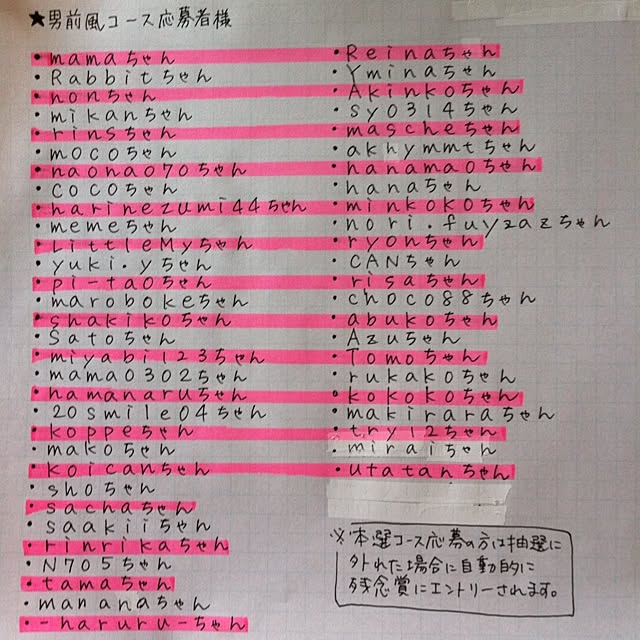 ★男前風コース応募者様
・mamaちゃん
・Rabbitちゃん
・nonちゃん
・mikanちゃん
・rinsちゃん
・mocoちゃん
・naonao70ちゃん
・cocoちゃん
・harinezumi44ちゃん
・memeちゃん
・LittleMyちゃん
・yuki.yちゃん
・pi-taoちゃん
・marobokeちゃん
・shakikoちゃん
・Satoちゃん
・miyabi123ちゃん
・mama0302ちゃん
・hamanaruちゃん
・20smile04ちゃん
・koppeちゃん
・makoちゃん
・koicanちゃん
・shoちゃん
・sachaちゃん
・saakiiちゃん
・rinrikaちゃん
・N705ちゃん
・tamaちゃん
・mananaちゃん
・-haruru-ちゃん
・Reinaちゃん
・Yminaちゃん
・Akinkoちゃん
・syo314ちゃん
・mascheちゃん
・akhymmtちゃん
・hanamaoちゃん
・hanaちゃん
・minkokoちゃん
・nori.fuyzazちゃん
・ryonちゃん
・CANちゃん
・risaちゃん
・choco88ちゃん
・abukoちゃん
・Azuちゃん
・Tomoちゃん
・rukakoちゃん
・kokokoちゃん
・makiraraちゃん
・try12ちゃん
・miraiちゃん
・utatanちゃん
※本選コース応募の方は抽選に
外れた場合に自動的に
残念賞にエントリーされます。